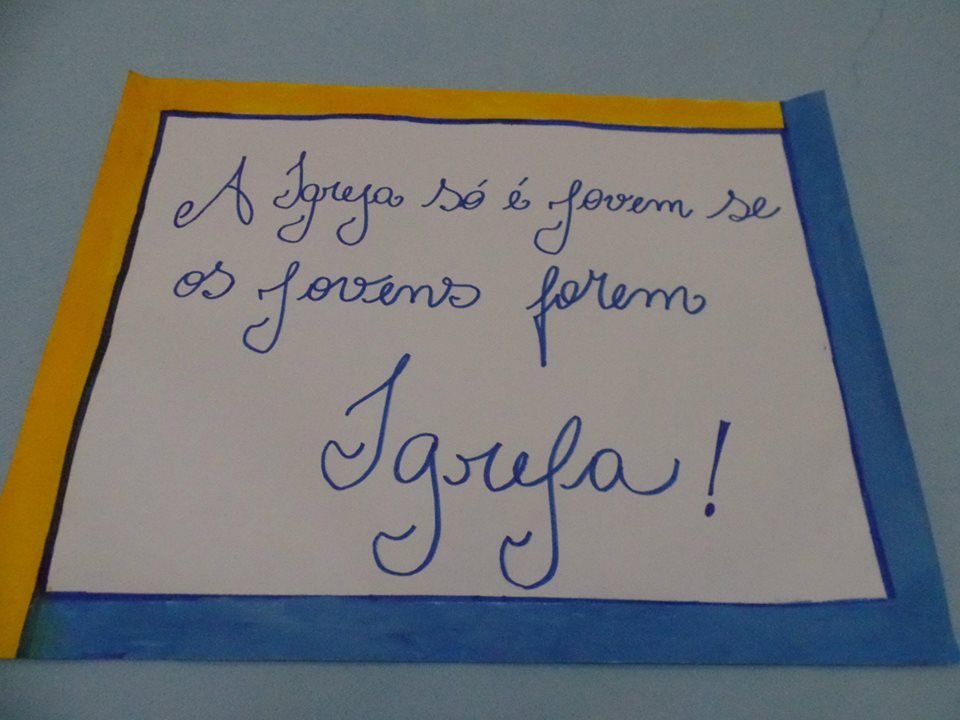 A Igreja só é jovem se
os jovens forem
Igreja!